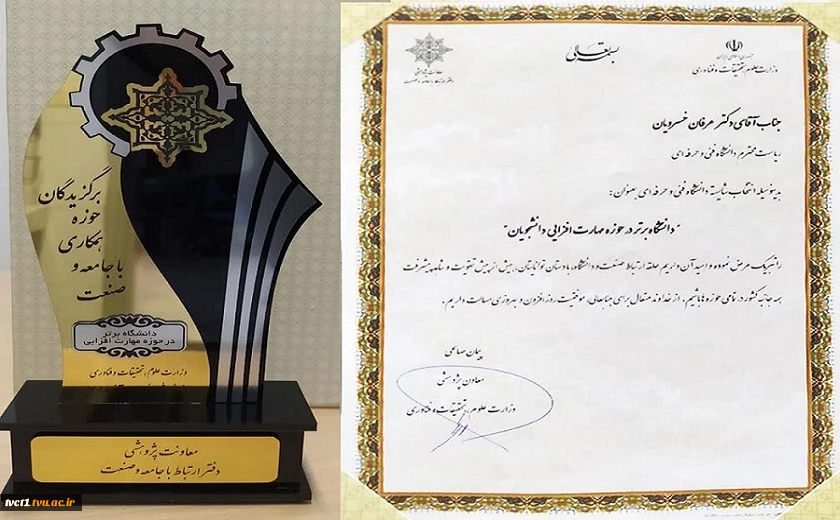 برگزیدگان
حوزه
همکاری
با جامعه و
صنعت
دانشگاه برتر
در حوزه مهارت افزایی
وزارت علوم، تحقیقات و فناوری
معاونت پژوهشی
دفتر ارتباط با جامعه و صنعت
tvct1.tvu.ac.ir
بسمه تعالی
جمهوری اسلامی ایران
وزارت علوم، تحقیقات و فناوری
معاونت پژوهشی
دفتر ارتباط با جامعه و صنعت
جناب آقای دکتر عرفان خسرویان
ریاست محترم دانشگاه فنی و حرفه ای
بدینوسیله انتخاب شایسته دانشگاه فنی و حرفه ای بعنوان:
"دانشگاه برتر در حوزه مهارت افزایی دانشجویان"
را تبریک عرض نموده و امید آن داریم حلقه ارتباط صنعت و دانشگاه، با دستان توانایتان، بیش از پیش تقویت و شاهد پیشرفت
همه جانبه کشور در تمامی حوزه ها باشیم. از خداوند متعال برای جنابعالی، موفقیت روزافزون و بهروزی مسالت داریم.
پیمان صالحی
معاون پژوهشی
وزارت علوم، تحقیقات و فناوری